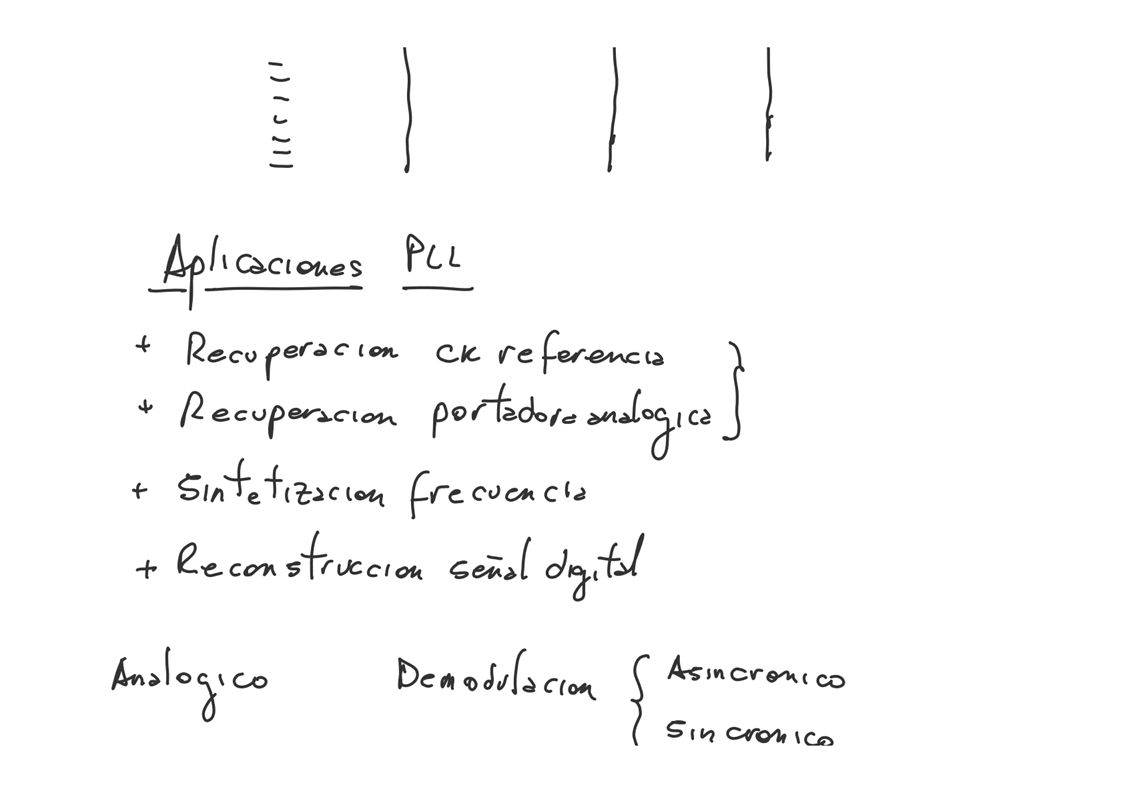 Aplicaciones PLL
+ Recuperacion CK referencia
+ Recuperacion portadora analogica
+ Sintetizacion frecuencia
+ Reconstruccion señal digital
Analogico Demodulacion { Asincronico
Sincronico